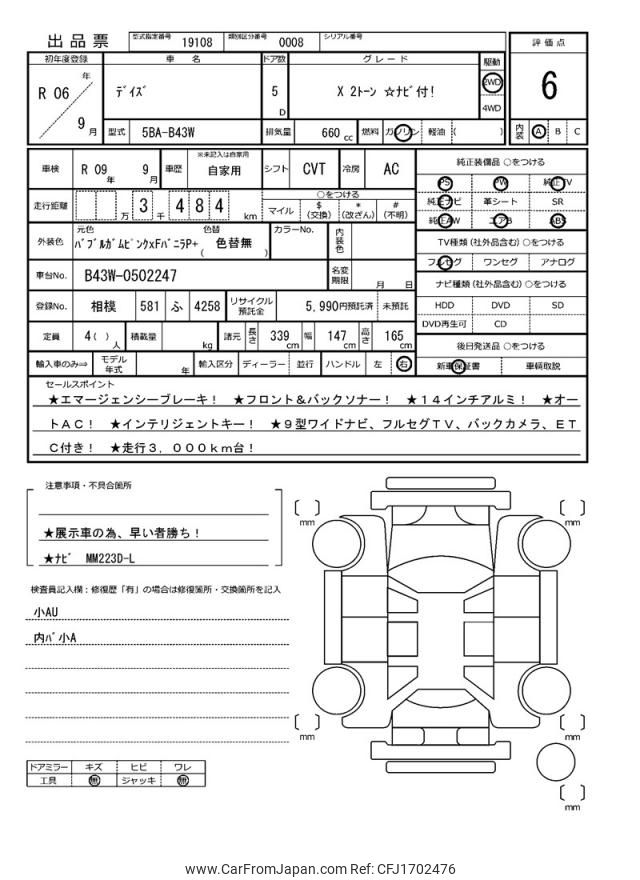 出品票 型式指定番号 19108 類別区分番号 0008 シリアル番号
評価点
6
内装 A B C
初年度登録 車名 ドア数 グレード 駆動
R 06 年 9 月 ﾃﾞｲｽﾞ 5 D X 2ﾄｰﾝ ☆ﾅﾋﾞ付! 2WD 4WD
型式 5BA-B43W 排気量 660 cc 燃料 ガソリン 軽油 ( )
車検 R 09 年 9 月 車歴 ※未記入は自家用 自家用 シフト CVT 冷房 AC
走行距離 万 3 千 4 8 4 km ○をつける
マイル $(交換) *(改ざん) #(不明)
外装色 元色 ﾊﾞﾌﾞﾙｶﾞﾑﾋﾟﾝｸxFﾊﾞﾆﾗP+ 色替 ( 色替無 ) カラーNo. 内装色
車台No. B43W-0502247 名変期限 月 日
登録No. 相模 581 ふ 4258 リサイクル預託金 5,990円預託済 未預託
定員 4( ) 人 積載量 kg 諸元 長さ 339 cm 幅 147 cm 高さ 165 cm
輸入車のみ⇒ モデル年式 年 輸入区分 ディーラー 並行 ハンドル 左 右
純正装備品 ○をつける
PS PW 純正TV
純正ナビ 革シート SR
純正AW エアB ABS
TV種類(社外品含む) ○をつける
フルセグ ワンセグ アナログ
ナビ種類(社外品含む) ○をつける
HDD DVD SD
DVD再生可 CD
後日発送品 ○をつける
新車保証書 車輌取説
セールスポイント
★エマージェンシーブレーキ! ★フロント&バックソナー! ★14インチアルミ! ★オー
トAC! ★インテリジェントキー! ★9型ワイドナビ、フルセグTV、バックカメラ、ET
C付き! ★走行3,000km台!
注意事項・不具合箇所
★展示車の為、早い者勝ち!
★ﾅﾋﾞ MM223D-L
検査員記入欄:修復歴「有」の場合は修復箇所・交換箇所を記入
小AU
内ﾊﾞ小A
ドアミラー キズ ヒビ ワレ
工具 無 ジャッキ 無
mm
mm
mm
mm
mm
www.CarFromJapan.com Ref: CFJ1702476